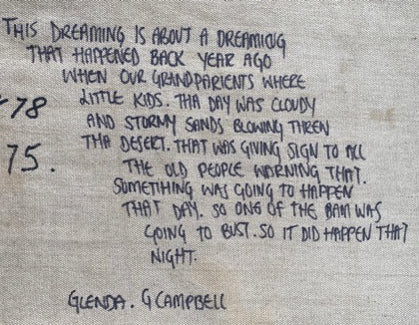 THIS DREAMING IS ABOUT A DREAMING
THAT HAPPENED BACK YEAR AGO
WHEN OUR GRANDPARIENTS WHERE
78 LITTLE KIDS. THA DAY WAS CLOUDY
AND STORMY SANDS BLOWING THREN
75. THA DESERT. THAT WAS GIVING SIGN TO ALL
THE OLD PEOPLE WARNING THAT.
SOMETHING WAS GOING TO HAPPEN
THAT DAY. SO ONE OF THE BAM WAS
GOING TO BUST. SO IT DID HAPPEN THAT
NIGHT.
GLENDA. G CAMPBELL